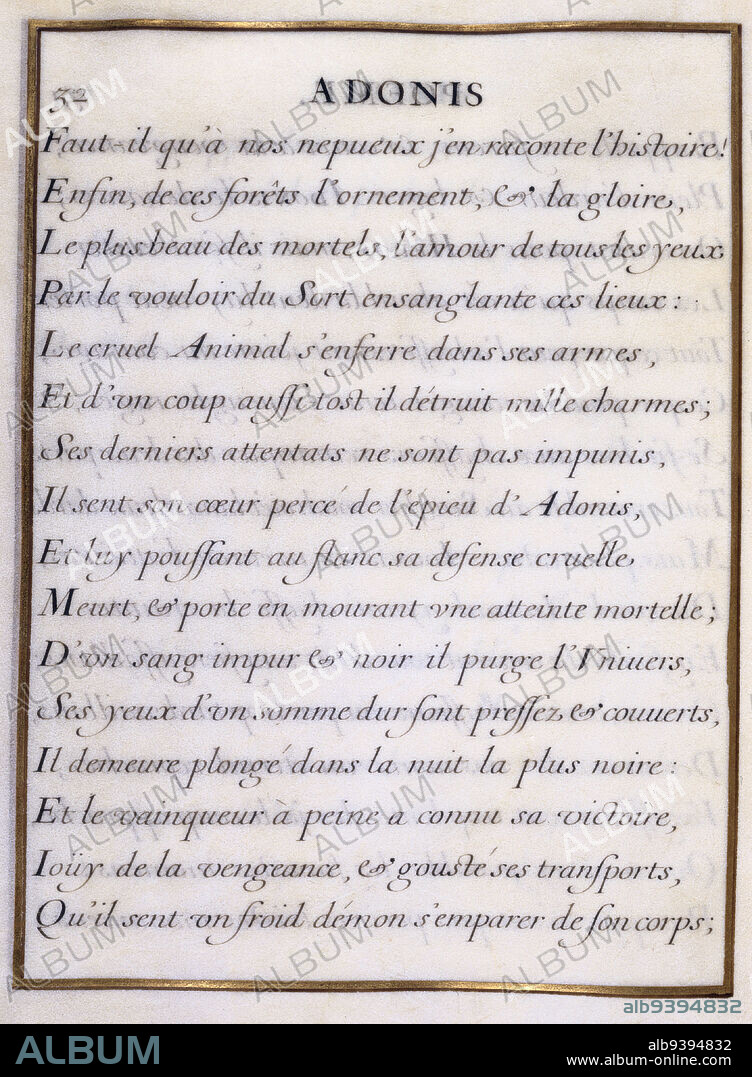 32
ADONIS
Faut-il qu'à nos nepueux j'en raconte l'histoire!
Enfin, de ces forêts l'ornement, & la gloire,
Le plus beau des mortels, l'amour de tous les yeux
Par le vouloir du Sort ensanglante ces lieux :
Le cruel Animal s'enferre dans ses armes,
Et d'vn coup auſſi tost il détruit mille charmes;
Ses derniers attentats ne sont pas impunis,
Il sent son cœur percé de l'épieu d'Adonis,
Et luy pouſſant au flanc sa defense cruelle
Meurt, & porte en mourant vne atteinte mortelle;
D'vn sang impur & noir il purge l'Vniuers,
Ses yeux d'vn somme dur ſont preſſez & couuerts,
Il demeure plongé dans la nuit la plus noire :
Et le vainqueur à peine a connu sa victoire,
Ioüy de la vengeance, & gousté ses tranſports,
Qu'il sent vn froid démon s'emparer de ſon corps;
alb9394832
ALBUM
alb9394832
www.album-online.com